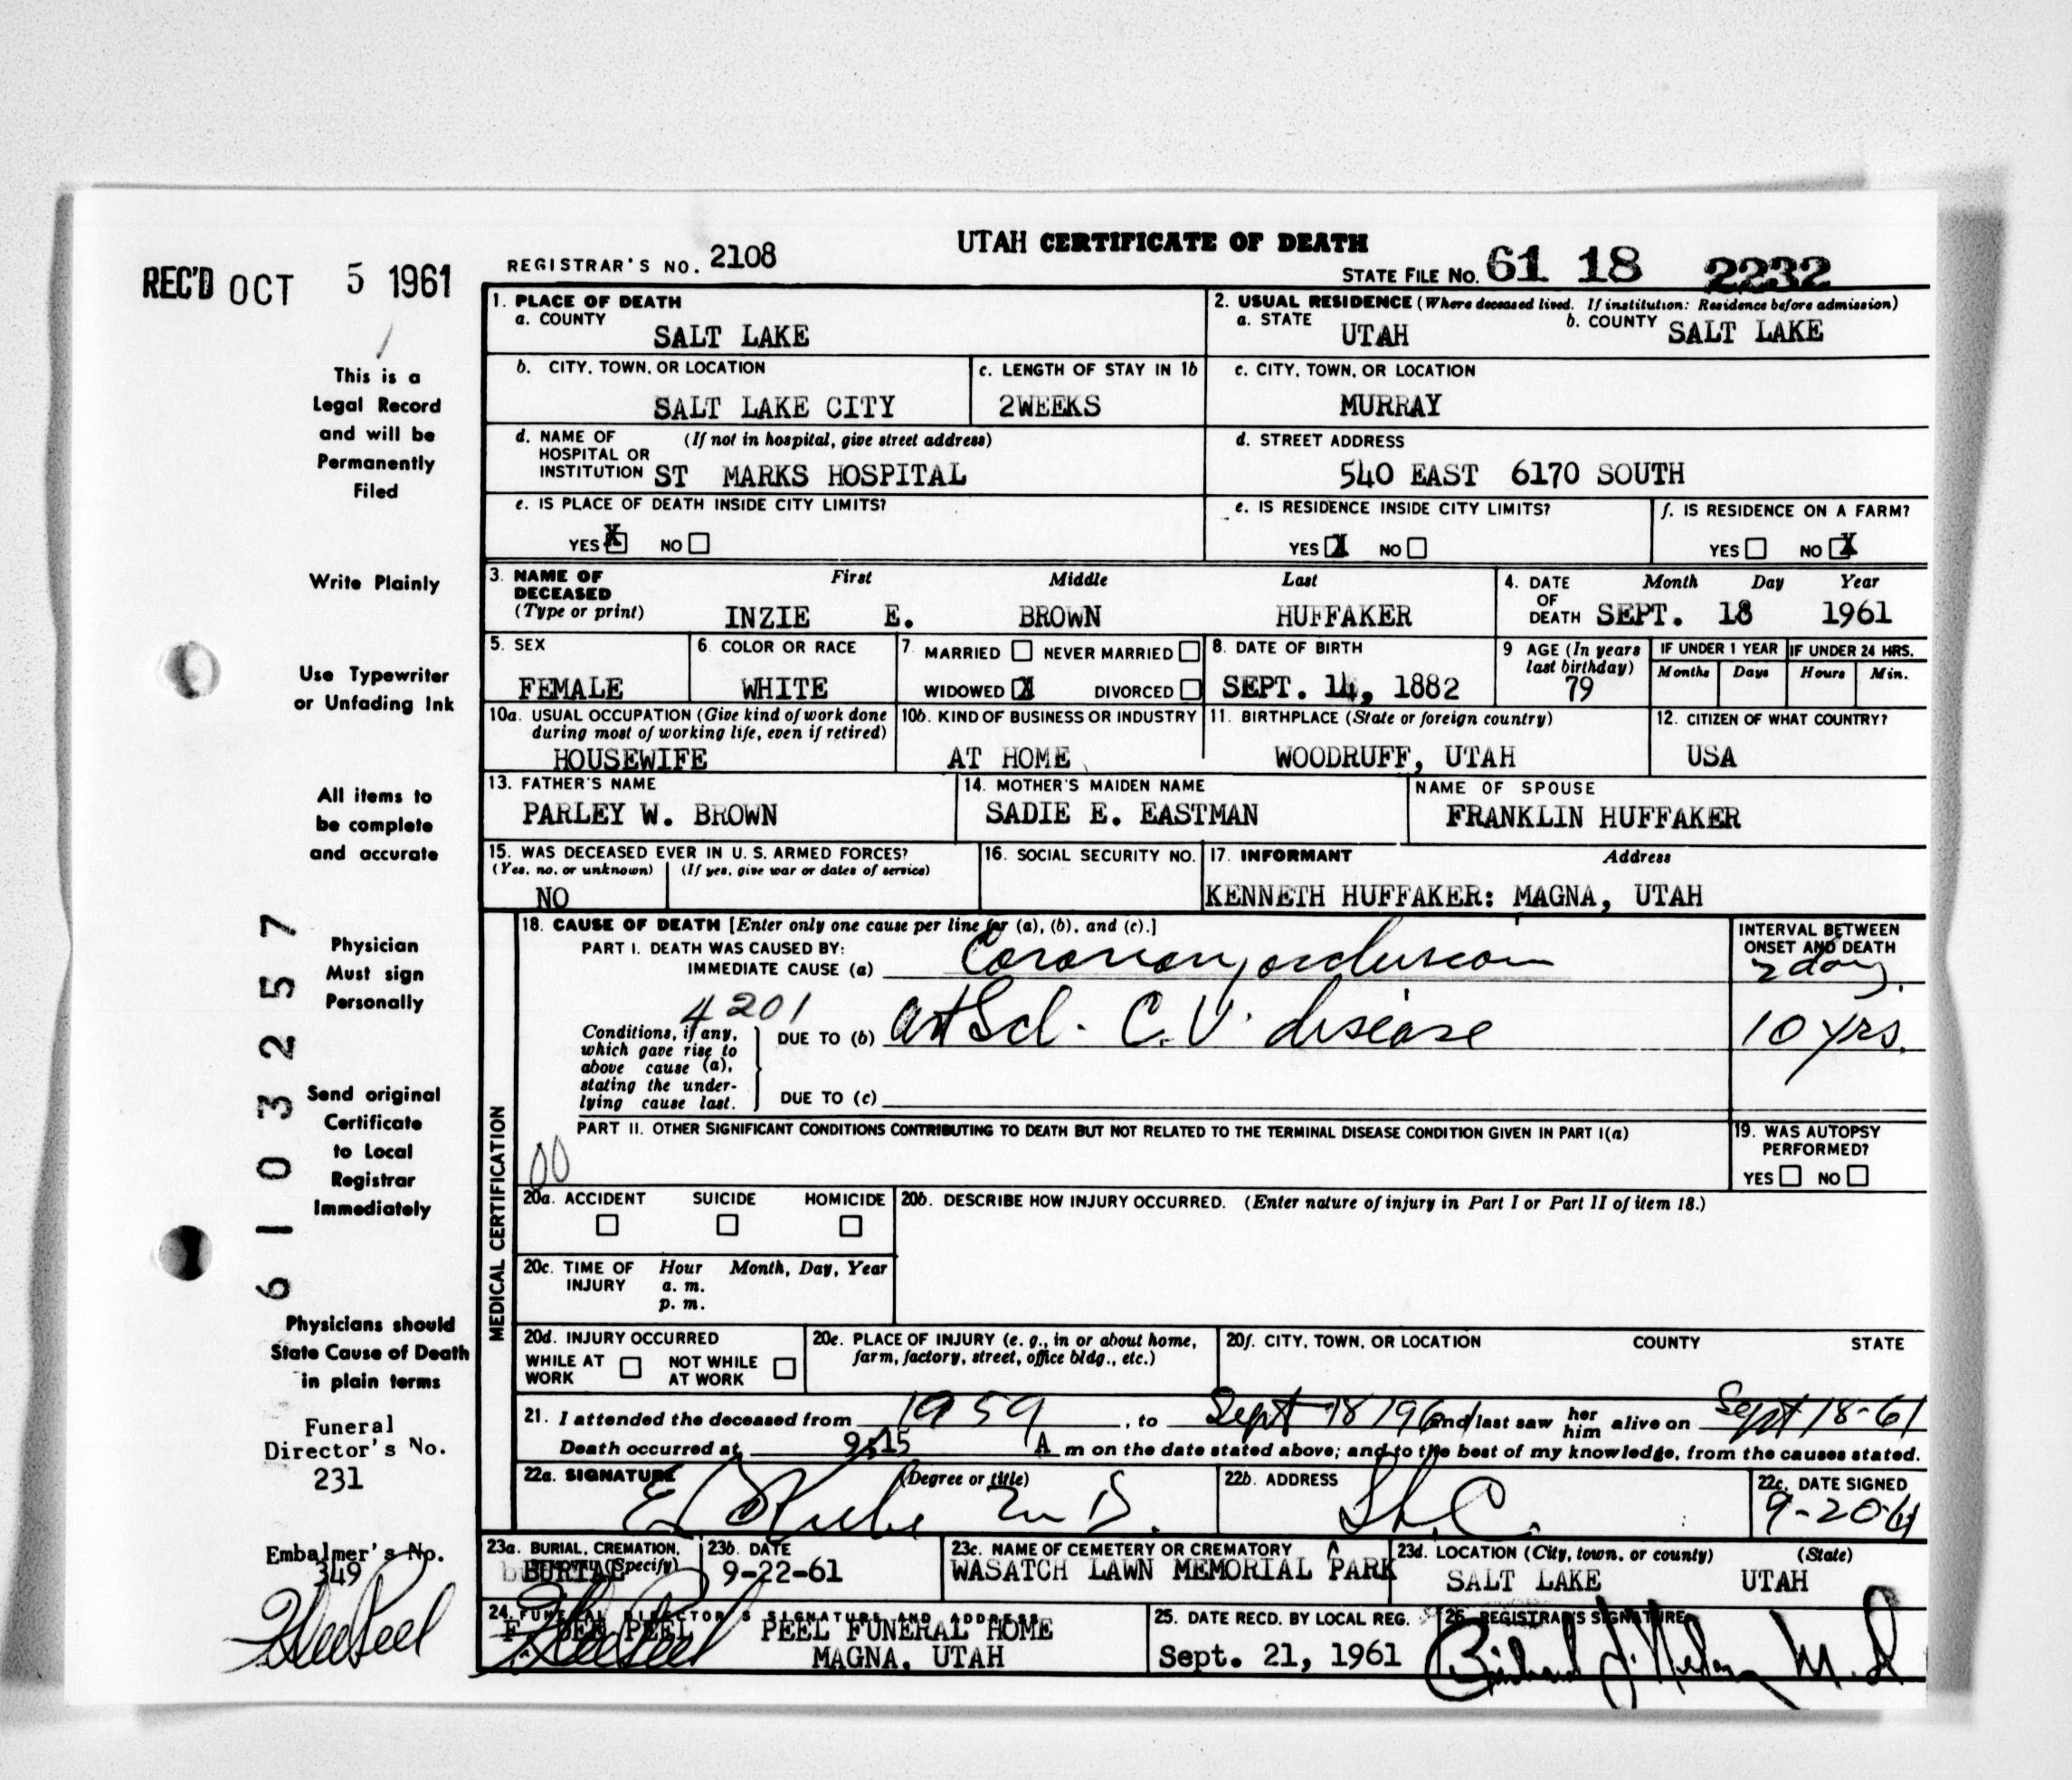 UTAH CERTIFICATE OF DEATH
REC'D OCT 5 1961
REGISTRAR'S NO. 2108
STATE FILE NO. 61 18 2232
This is a
Legal Record
and will be
Permanently
Filed
Write Plainly
Use Typewriter
or Unfading Ink
All items to
be complete
and accurate
Physician
Must sign
Personally
Send original
Certificate
to Local
Registrar
Immediately
Physicians should
State Cause of Death
in plain terms
Funeral
Director's No.
231
Embalmer's No.
349
61 03257
1. PLACE OF DEATH
a. COUNTY
SALT LAKE
2. USUAL RESIDENCE (Where deceased lived. If institution: Residence before admission)
a. STATE UTAH b. COUNTY SALT LAKE
b. CITY, TOWN, OR LOCATION
SALT LAKE CITY
c. LENGTH OF STAY IN 1b
2WEEKS
c. CITY, TOWN, OR LOCATION
MURRAY
d. NAME OF (If not in hospital, give street address)
HOSPITAL OR
INSTITUTION ST MARKS HOSPITAL
d. STREET ADDRESS
540 EAST 6170 SOUTH
e. IS PLACE OF DEATH INSIDE CITY LIMITS?
YES X NO
e. IS RESIDENCE INSIDE CITY LIMITS?
YES X NO
f. IS RESIDENCE ON A FARM?
YES NO X
3. NAME OF DECEASED (Type or print)
First Middle Last
INZIE E. BROWN HUFFAKER
4. DATE OF DEATH
Month Day Year
SEPT. 18 1961
5. SEX
FEMALE
6. COLOR OR RACE
WHITE
7. MARRIED NEVER MARRIED
WIDOWED X DIVORCED
8. DATE OF BIRTH
SEPT. 14, 1882
9 AGE (In years
last birthday)
79
IF UNDER 1 YEAR
Months Days
IF UNDER 24 HRS.
Hours Min.
10a. USUAL OCCUPATION (Give kind of work done
during most of working life, even if retired)
HOUSEWIFE
10b. KIND OF BUSINESS OR INDUSTRY
AT HOME
11. BIRTHPLACE (State or foreign country)
WOODRUFF, UTAH
12. CITIZEN OF WHAT COUNTRY?
USA
13. FATHER'S NAME
PARLEY W. BROWN
14. MOTHER'S MAIDEN NAME
SADIE E. EASTMAN
NAME OF SPOUSE
FRANKLIN HUFFAKER
15. WAS DECEASED EVER IN U. S. ARMED FORCES?
(Yes, no, or unknown) (If yes, give war or dates of service)
NO
16. SOCIAL SECURITY NO.
17. INFORMANT Address
KENNETH HUFFAKER: MAGNA, UTAH
MEDICAL CERTIFICATION
18. CAUSE OF DEATH [Enter only one cause per line for (a), (b), and (c).]
PART I. DEATH WAS CAUSED BY:
IMMEDIATE CAUSE (a) Coronary occlusion
INTERVAL BETWEEN
ONSET AND DEATH
2 days
4201
Conditions, if any,
which gave rise to
above cause (a),
stating the under-
lying cause last.
DUE TO (b) artScl. C.V. disease
10 yrs.
DUE TO (c)
PART II. OTHER SIGNIFICANT CONDITIONS CONTRIBUTING TO DEATH BUT NOT RELATED TO THE TERMINAL DISEASE CONDITION GIVEN IN PART I(a)
00
19. WAS AUTOPSY
PERFORMED?
YES NO
20a. ACCIDENT SUICIDE HOMICIDE
20b. DESCRIBE HOW INJURY OCCURRED. (Enter nature of injury in Part I or Part II of item 18.)
20c. TIME OF INJURY
Hour Month, Day, Year
a. m.
p. m.
20d. INJURY OCCURRED
WHILE AT WORK NOT WHILE AT WORK
20e. PLACE OF INJURY (e. g., in or about home,
farm, factory, street, office bldg., etc.)
20f. CITY, TOWN, OR LOCATION COUNTY STATE
21. I attended the deceased from 1959, to Sept 18 1961 and last saw her him alive on Sept 18-61
Death occurred at 9:15 A m on the date stated above; and to the best of my knowledge, from the causes stated.
22a. SIGNATURE (Degree or title)
M D.
22b. ADDRESS
S.L.C.
22c. DATE SIGNED
9-20-61
23a. BURIAL, CREMATION,
REMOVAL (Specify)
BURIAL
23b. DATE
9-22-61
23c. NAME OF CEMETERY OR CREMATORY
WASATCH LAWN MEMORIAL PARK
23d. LOCATION (City, town, or county) (State)
SALT LAKE UTAH
24. FUNERAL DIRECTOR'S SIGNATURE AND ADDRESS
F DEE PEEL PEEL FUNERAL HOME
MAGNA, UTAH
25. DATE RECD. BY LOCAL REG.
Sept. 21, 1961
26. REGISTRAR'S SIGNATURE